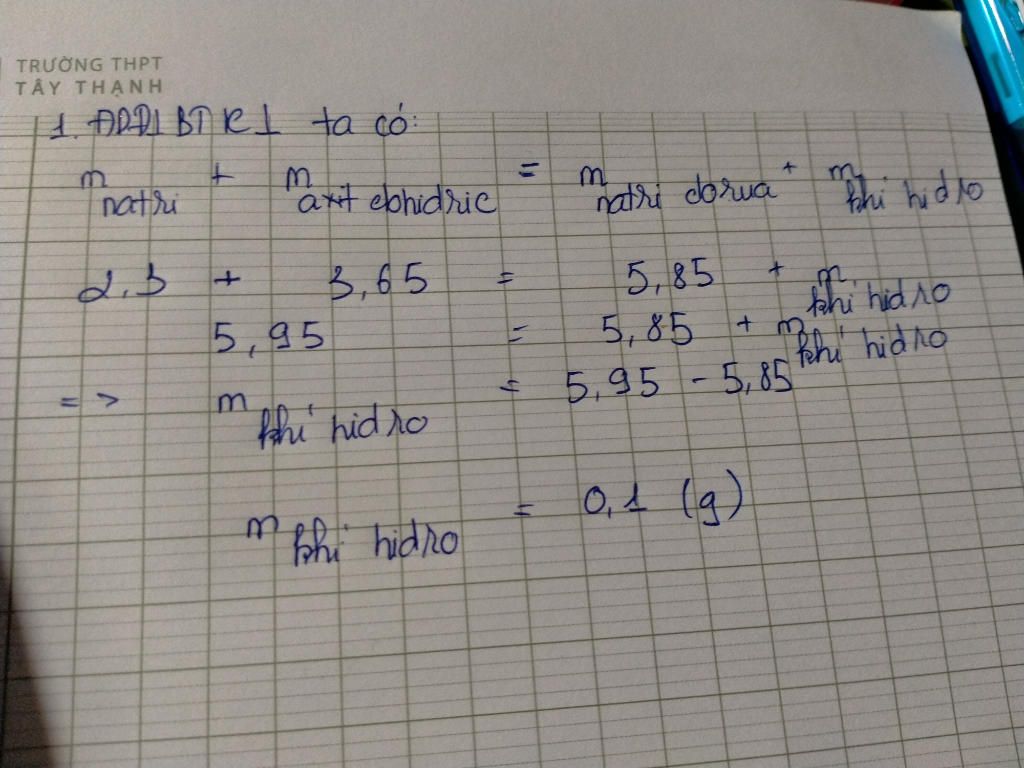 TRƯỜNG THPT
TÂY THẠNH
1. ADĐL BTKL ta có:
m natri + m axit clohidric = m natri clorua + m khí hidro
2,3 + 3,65 = 5,85 + m khí hidro
5,95 = 5,85 + m khí hidro
=> m khí hidro = 5,95 - 5,85
m khí hidro = 0,1 (g)